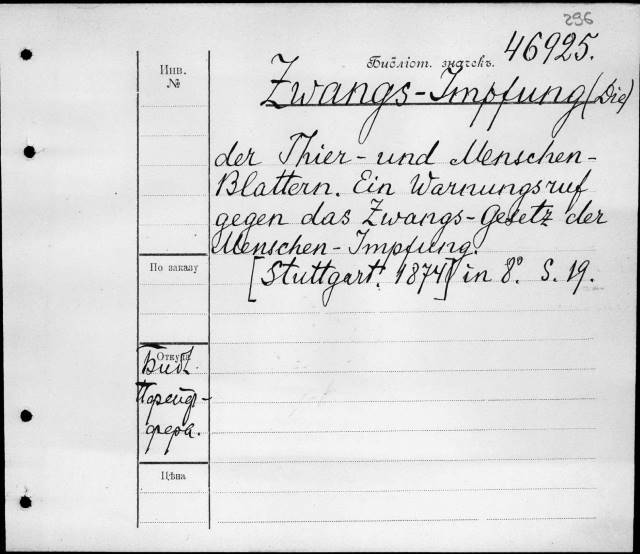 296
Инв.
№
Библіот. значекъ.
46925.
Zwangs-Impfung (Die)
der Thier- und Menschen-
Blattern. Ein Warnungsruf
gegen das Zwangs-Gesetz der
Menschen-Impfung.
[Stuttgart. 1874] in 8° S. 19.
По заказу
Откуда
Библ.
Цѣна